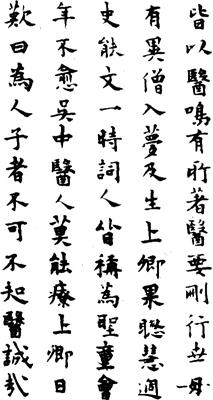 皆以醫鳴有所著醫要刪行世母
有異僧入夢及生上卿果聡慧過
史能文一時詞人皆稱為聖童會
年不愈吳中醫人莫能療上卿日
歎曰為人子者不可不知醫誠哉